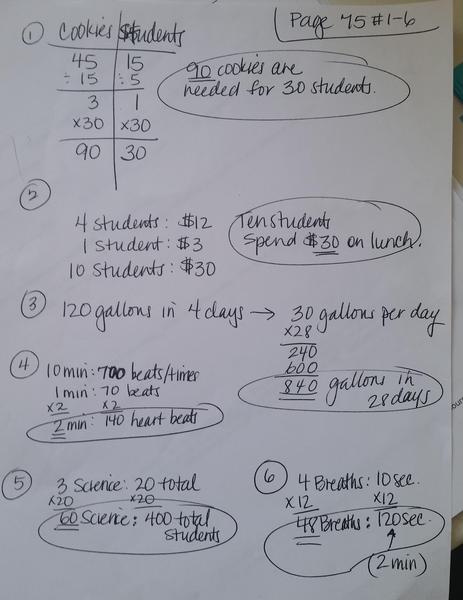 Page 75 #1-6
① Cookies Students
45 15
÷15 ÷5
3 1
×30 ×30
90 30
90 cookies are
needed for 30 students.
②
4 students: $12
1 student: $3
10 students: $30
Ten students
spend $30 on lunch.
③ 120 gallons in 4 days → 30 gallons per day
×28
240
600
840 gallons in
28 days
④ 10 min: 700 beats/times
1 min: 70 beats
×2 ×2
2 min: 140 heart beats
⑤ 3 Science: 20 total
×20 ×20
60 Science: 400 total
students
⑥ 4 Breaths: 10 sec.
×12 ×12
48 Breaths: 120 sec.
(2 min)